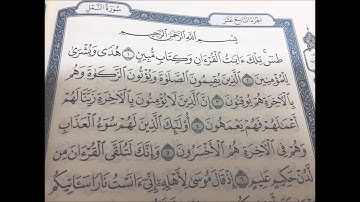 سُورَةُ النَّمۡلِ
الجُزْءُ التَّاسِعَ عَشَرَ
بِسۡمِ ٱللَّهِ ٱلرَّحۡمَٰنِ ٱلرَّحِيمِ
طسٓۚ تِلۡكَ ءَايَٰتُ ٱلۡقُرۡءَانِ وَكِتَابٖ مُّبِينٍ ١ هُدٗى وَبُشۡرَىٰ
لِلۡمُؤۡمِنِينَ ٢ ٱلَّذِينَ يُقِيمُونَ ٱلصَّلَوٰةَ وَيُؤۡتُونَ ٱلزَّكَوٰةَ وَهُم
بِٱلۡأٓخِرَةِ هُمۡ يُوقِنُونَ ٣ إِنَّ ٱلَّذِينَ لَا يُؤۡمِنُونَ بِٱلۡأٓخِرَةِ زَيَّنَّا لَهُمۡ
أَعۡمَٰلَهُمۡ فَهُمۡ يَعۡمَهُونَ ٤ أُوْلَٰٓئِكَ ٱلَّذِينَ لَهُمۡ سُوٓءُ ٱلۡعَذَابِ
وَهُمۡ فِي ٱلۡأٓخِرَةِ هُمُ ٱلۡأَخۡسَرُونَ ٥ وَإِنَّكَ لَتُلَقَّى ٱلۡقُرۡءَانَ مِن
لَّدُنۡ حَكِيمٍ عَلِيمٍ ٦ إِذۡ قَالَ مُوسَىٰ لِأَهۡلِهِۦٓ إِنِّيٓ ءَانَسۡتُ نَارٗا سَـَٔاتِيكُم